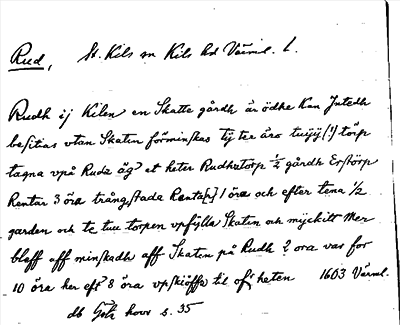 Rud, St. Kils sn Kils hd Värml. l.
Rudh ij Kilen en Skatte gårdh är ödhe kan Jntedh
besitias vtan Skaten förminskas ty tee äro tuijij (!) törp
tagna vpå Rudz äg? et heter Rudhztorp 1/2 gårdh Erstörp
Rentar 3 öra trångstada Renta[r] 1 öre och efter tena 1/2
garden och te tuu torpen vpfylla Skaten och myckitt mer
bleff aff minskadh aff Skaten på Rudh 2 ora var for
10 öra her efft 8 öra vpskiöffz til ofs heten 1603 Värml.
db Götz hoov s. 35